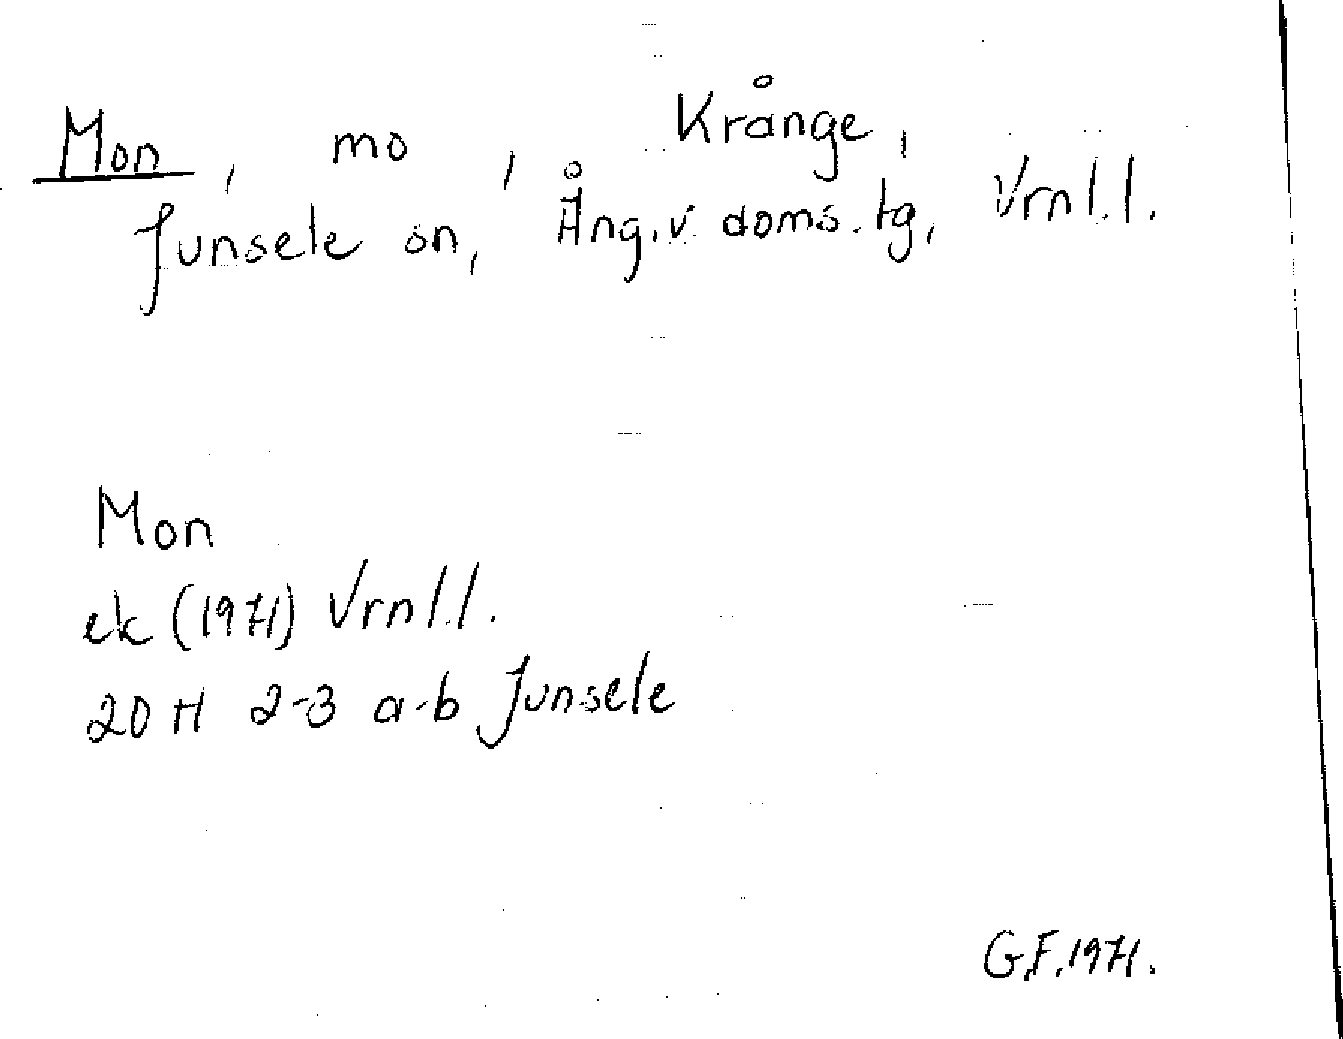 Mon, mo, Krånge,
Junsele sn, Ång. v doms. tg, Vrnl.l.
Mon
ek (1971) Vrnl.l.
20 H 2-3 a-b Junsele
G.F. 1971.